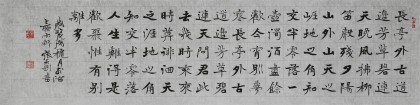 長亭外古
道邊芳草碧連
天晚風拂柳
笛聲殘夕陽
山外山天之
涯地之角知
交半零落一
壺濁酒盡餘
歡今宵別夢
寒長亭外古
道邊芳草碧
連天問君此
去幾時來
時莫徘徊天
之涯地之角
知交半零落
人生難得是
歡聚惟有別
離多